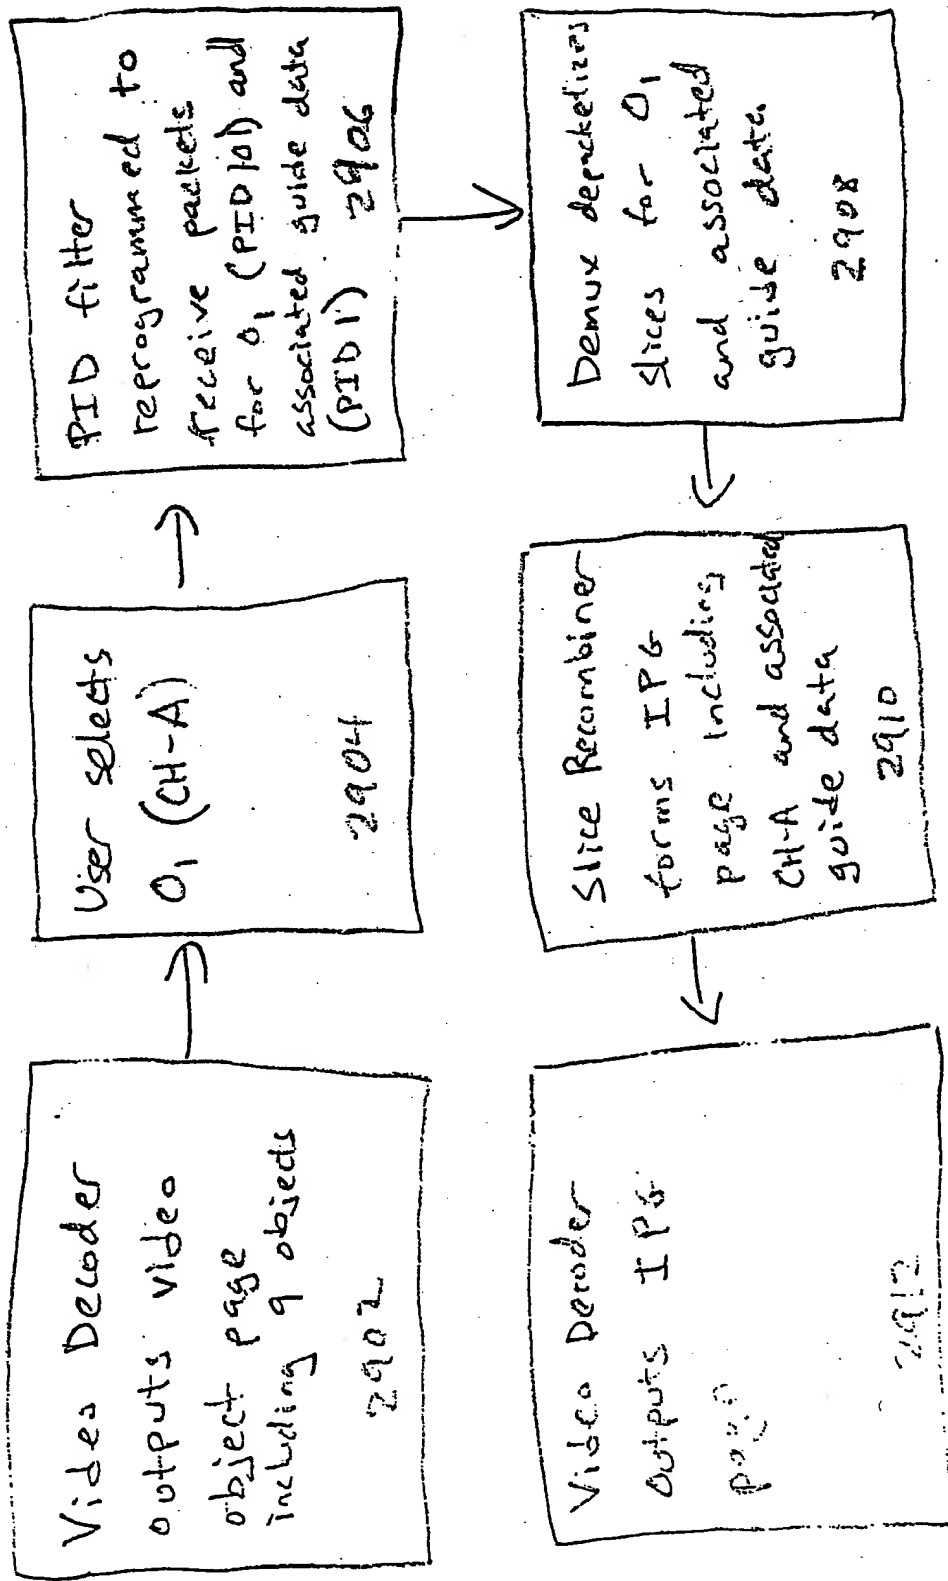 Video Decoder
outputs video
object page
including 9 objects
2902
User selects
O1 (CH-A)
2904
PID filter
reprogrammed to
receive packets
for O1 (PID 101) and
associated guide data
(PID 1) 2906
Demux depacketizes
slices for O1
and associated
guide data
2908
Slice Recombiner
forms IPG
page including
CH-A and associated
guide data
2910
Video Decoder
Outputs IPG
page
2912